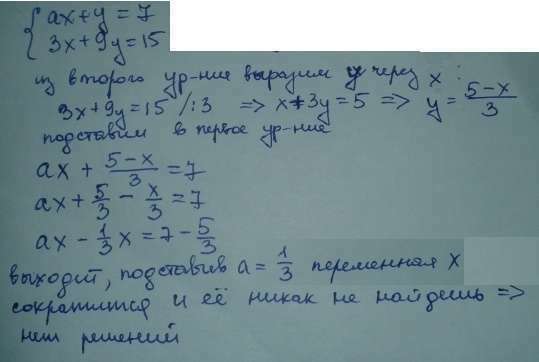 { ax+y=7
3x+9y=15
из второго ур-ние выразим y через x:
3x+9y=15 /:3 => x+3y=5 => y=\frac{5-x}{3}
подставим в первое ур-ние
ax+\frac{5-x}{3}=7
ax+\frac{5}{3}-\frac{x}{3}=7
ax-\frac{1}{3}x=7-\frac{5}{3}
выходит, подставив a=\frac{1}{3} переменная x
сократится и её никак не найдешь =>
нет решений